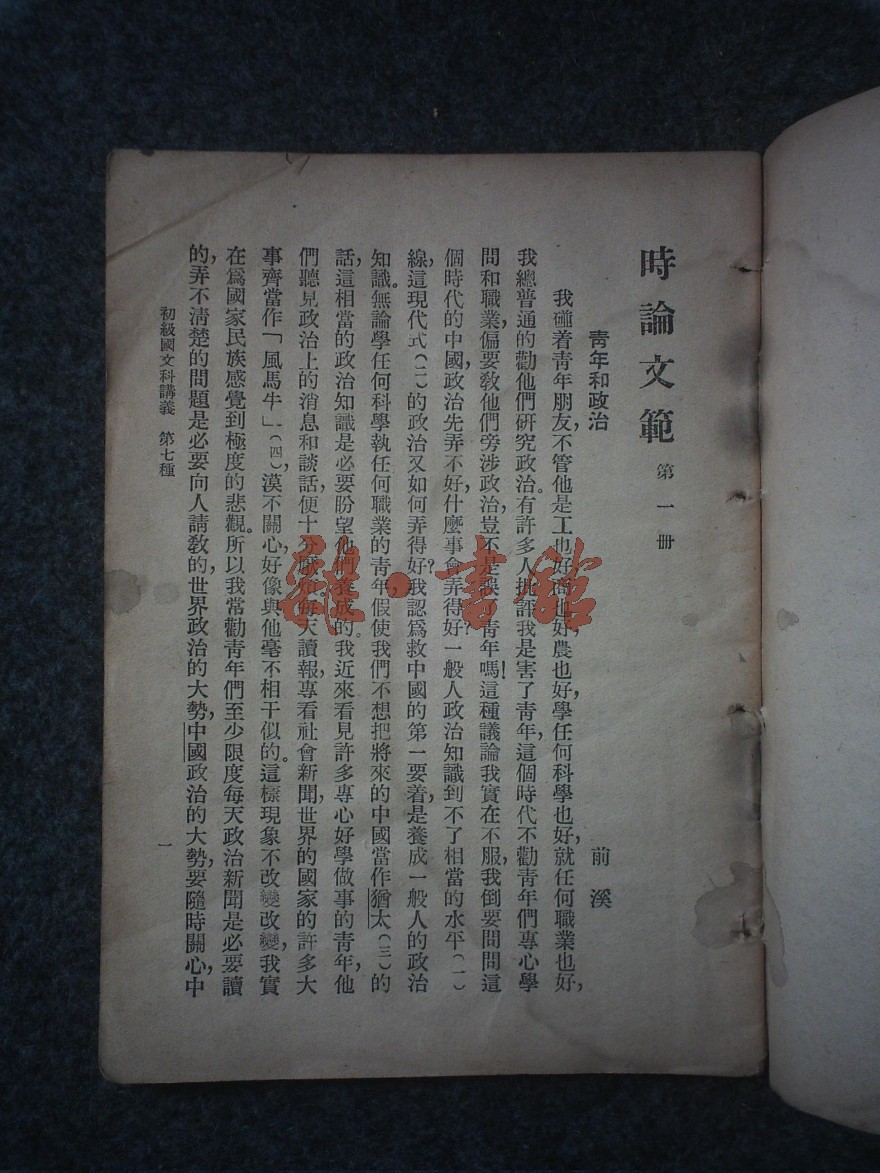 時論文範 第一冊
青年和政治 前溪
我碰着青年朋友，不管他是工也好，商也好，農也好，學任何科學也好，就任何職業也好，
我總普通的勸他們研究政治。有許多人批評我是害了青年，這個時代不勸青年們專心學
問和職業，偏要教他們旁涉政治，豈不是誤了青年嗎！這種議論我實在不服，我倒要問問這
個時代的中國，政治先弄不好，什麼事會弄得好？一般人政治知識到不了相當的水平（一）
線，這現代式（二）的政治又如何弄得好？我認爲救中國的第一要着，是養成一般人的政治
知識。無論學任何科學執任何職業的青年，假使我們不想把將來的中國當作猶太（三）的
話，這相當的政治知識是必要盼望他們養成的。我近來看見許多專心好學做事的青年，他
們聽見政治上的消息和談話，便十分厭煩，每天讀報，專看社會新聞，世界的國家的許多大
事齊當作「風馬牛」（四），漠不關心，好像與他毫不相干似的。這樣現象不改變改變，我實
在爲國家民族感覺到極度的悲觀。所以我常勸青年們至少限度每天政治新聞是必要讀
的，弄不清楚的問題是必要向人請教的，世界政治的大勢，中國政治的大勢，要隨時關心，中
初級國文科講義 第七種
一
雜·書館